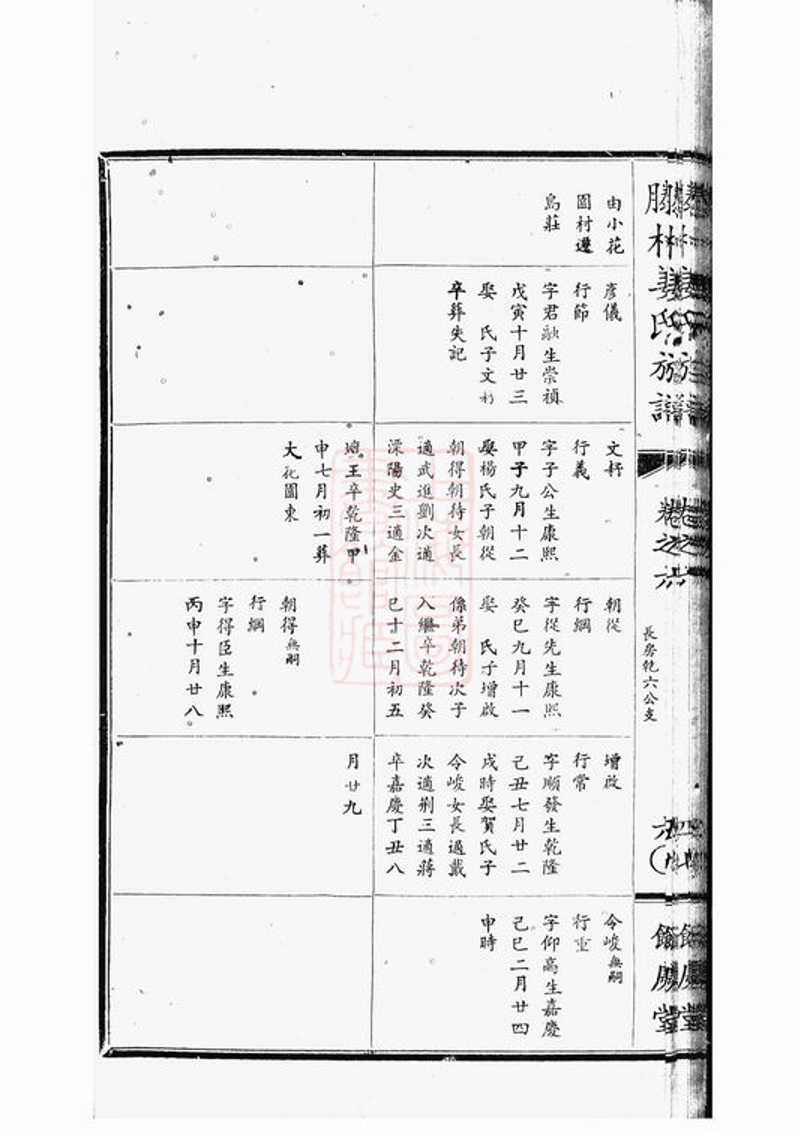 林姜氏族譜
卷之六
長房乾六公支
由小花
園村遷
烏莊
彦儀
行節
字君融生崇禎
戊寅十月廿三
娶 氏子文軒
卒葬失記
文軒
行義
字子公生康熙
甲子九月十二
娶楊氏子朝從
朝得朝待女長
適武進劉次適
溧陽史三適金
壇王卒乾隆甲
申七月初一葬
大花園東
朝從
行綱
字從先生康熙
癸巳九月十一
娶 氏子增啟
係弟朝待次子
入繼卒乾隆癸
巳十二月初五
朝得無嗣
行綱
字得臣生康熙
丙申十月廿八
增啟
行常
字順發生乾隆
己丑七月廿二
戌時娶賀氏子
令峻女長適戴
次適荆三適蔣
卒嘉慶丁丑八
月廿九
令峻無嗣
行重
字仰高生嘉慶
己巳二月廿四
申時